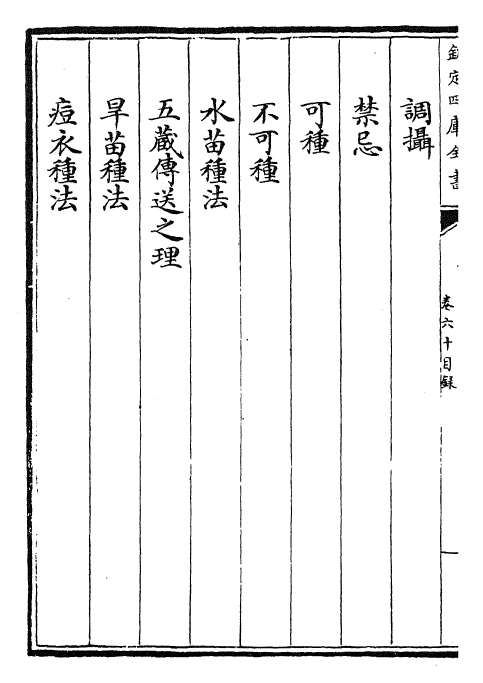 欽定四庫全書
卷六十目録
調攝
禁忌
可種
不可種
水苗種法
五蔵傳送之理
旱苗種法
痘衣種法